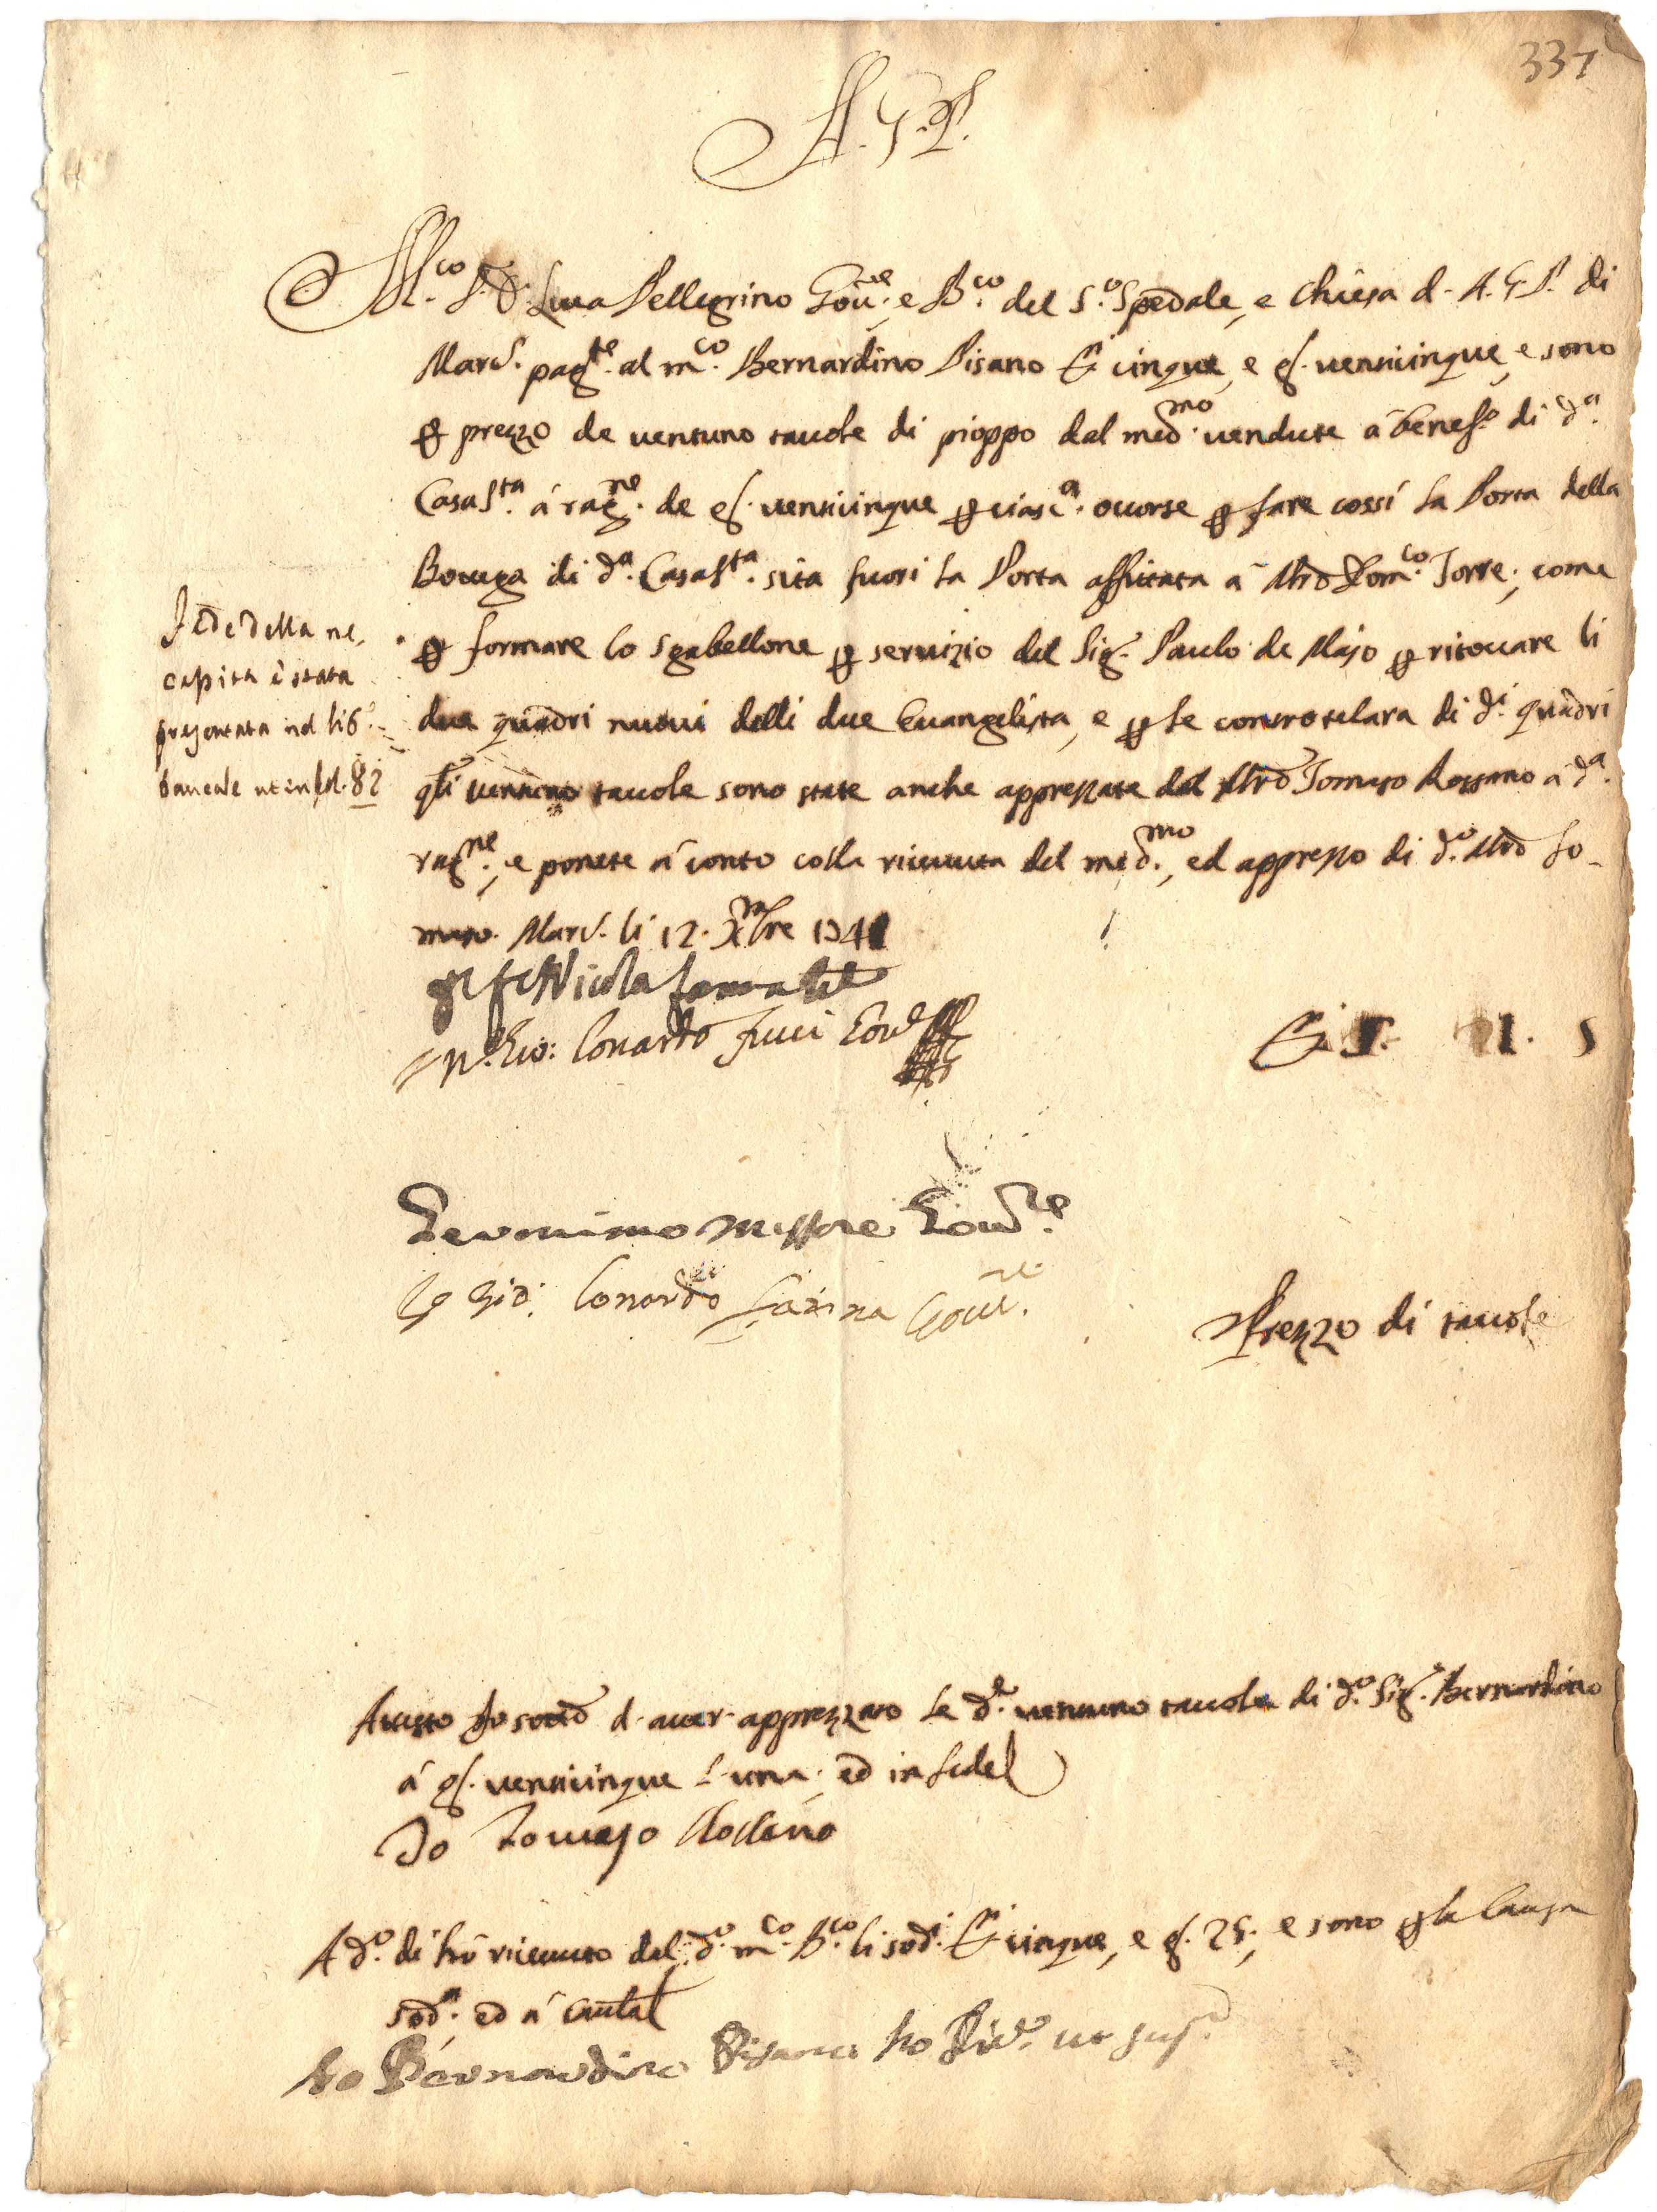 337
A.G.P.
M.co S.r D. Luca Pellegrino Gov.re e B.co del S.o Spedale, e Chiesa d. A.G.P. di
Marc.e pag.te al m.co Bernardino Pisano D.i cinque, e g.a venticinque, e sono
per prezzo de ventuno tavole di pioppo dal med.mo vendute à benef.o di d.a
Casa S.ta à rag.ne de g.a venticinque per ciasc.a occorse per fare cossì la Porta della
Bottega di d.a Casa S.ta sita fuori la Porta affittata à Mro Dom.co Torre, come
per formare lo sgabellone per servizio del Sig.r Paulo de Majo per ritoccare li
due quadri nuovi delli due Evangelista, e per le controtelara di d.i quadri
q.li ventuno tavole sono state anche apprezzate dal Mro Tomaso Rossano à d.a
rag.ne, e ponete à conto colla ricevuta del med.mo, ed apprezzo di d.o Mro To-
maso. Marc.e li 12. Xmbre 1741
Nicola
Gio: Lonardo Fucci Gov.re
D.i 5. 1. 5
Fede della re,
capita è stata
presentata nel lib.o
bancale ut in fol. 82
Geronimo Messore Gov.re
Io Gio: Lonardo Farina Gov.re
Prezzo di tavole
Attesto Io sott.o d'aver apprezzato le d.e ventuno tavole di d.o Sig.r Bernardino
à g.a venticinque l'una, ed in fede
Io Tomaso Rossano
A d.o dì hò ricevuto dal d.o m.co B.co li sod.i D.i cinque, e g.a 25, e sono per la causa
sod.a ed à cautela
Io Bernardino Pisano ho Ric.o ut sup.a